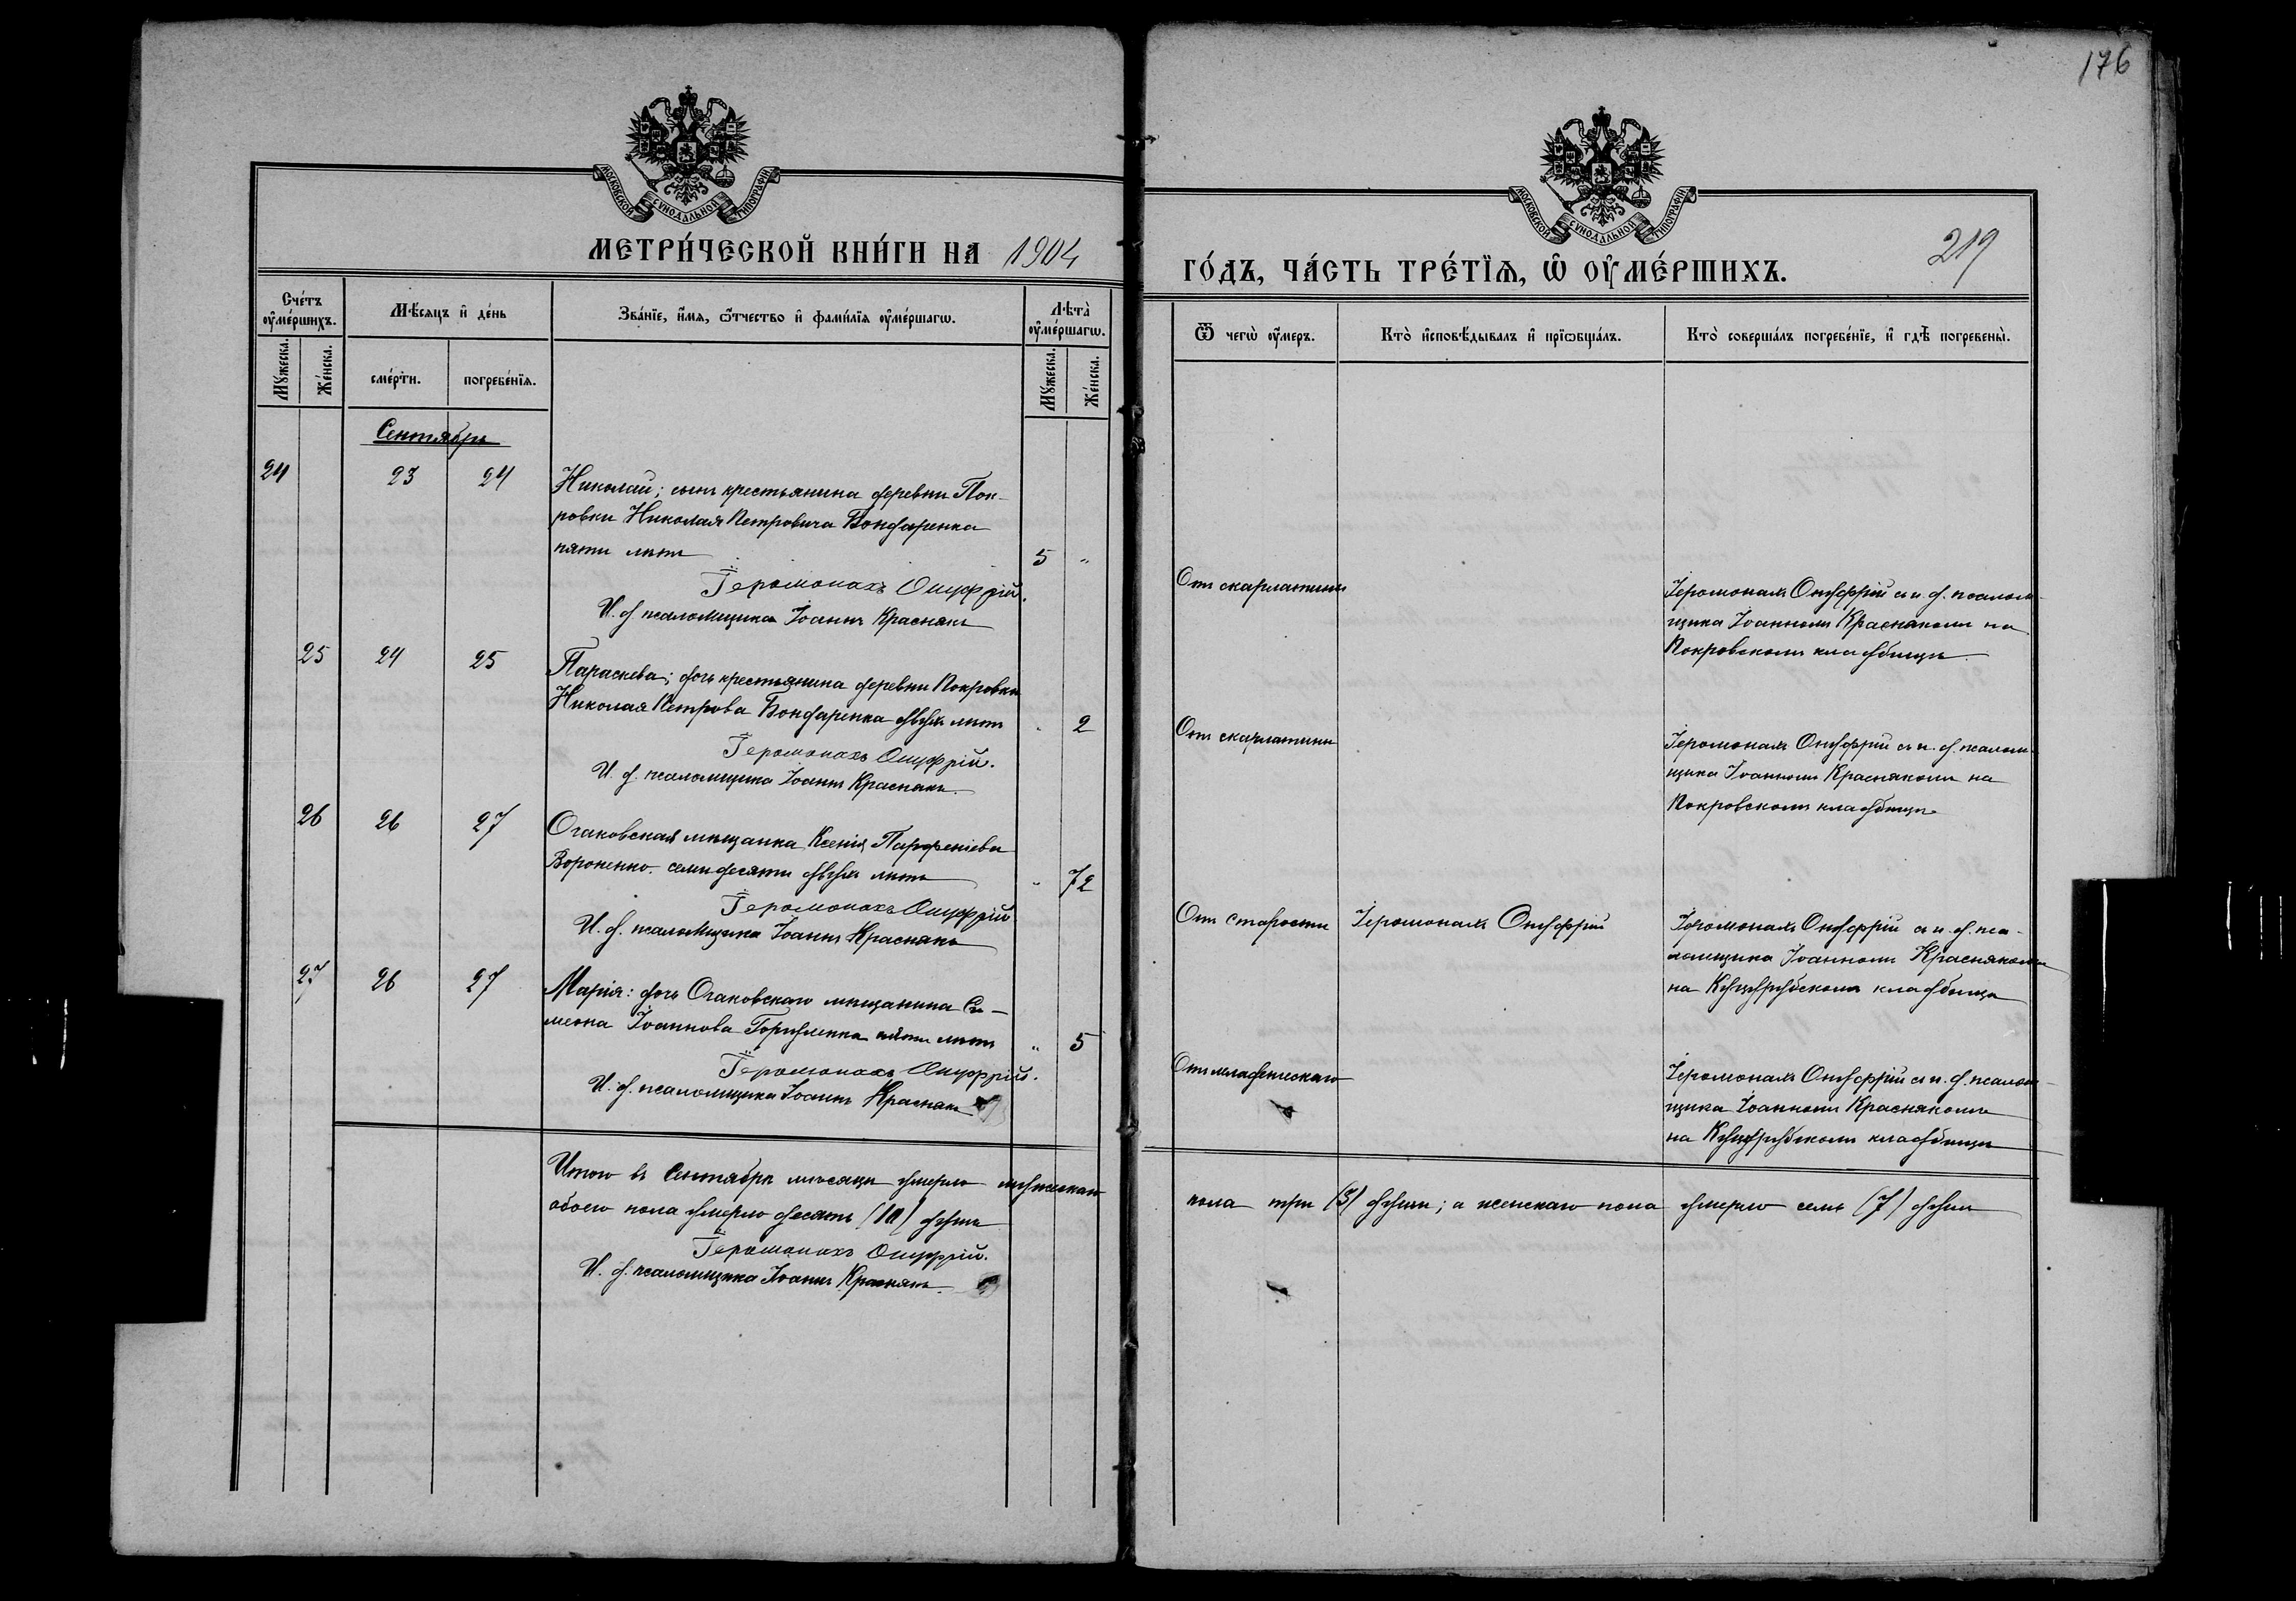 176
МОСКОВСКОЙ СѴНОДАЛЬНОЙ ТИПОГРАФІИ
МОСКОВСКОЙ СѴНОДАЛЬНОЙ ТИПОГРАФІИ
МЕТРИ́ЧЕСКОЙ КНИ́ГИ НА 1904
ГО́ДЪ, ЧА́СТЬ ТРЕ́ТІѦ, Ѡ ОУ҆МЕ́РШИХЪ.
219
Сче́тъ оу҆ме́ршихъ.
Мꙋжеска. Же́нска.
Мѣ́сѧцъ и҆ де́нь
сме́рти. погребе́нїѧ.
Зва́нїе, и҆́мѧ, ѻ҆́тчество и҆ фами́лїѧ оу҆ме́ршагѡ.
Лѣта̀ оу҆ме́ршагѡ.
Мꙋжеска. Же́нска.
Ѿ чегѡ̀ оу҆́меръ.
Кто̀ и҆сповѣ́дывалъ и҆ прїѡбща́лъ.
Кто̀ соверша́лъ погребе́нїе, и҆ гдѣ̀ погребены̀.
Сентябрь
24 23 24 Николай; сынъ крестьянина деревни Пок-
ровки Николая Петровича Бондаренка
пяти лѣтъ 5 „
Іеромонахъ Онуфрій.
И. д. псаломщика Іоаннъ Краснякъ
Отъ скарлатины
Іеромонахъ Онуфрій съ и. д. псалом-
щика Іоанномъ Краснякомъ на
Покровскомъ кладбищѣ.
25 24 25 Параскева; дочь крестьянина деревни Покровки
Николая Петрова Бондаренка двухъ лѣтъ „ 2
Іеромонахъ Онуфрій.
И. д. псаломщика Іоаннъ Краснякъ.
Отъ скарлатины
Іеромонахъ Онуфрій съ и. д. псалом-
щика Іоанномъ Краснякомъ на
Покровскомъ кладбищѣ
26 26 27 Очаковская мѣщанка Ксенія Парфеніева
Вороненко. семидесяти двухъ лѣтъ „ 72
Іеромонахъ Онуфрій
И. д. псаломщика Іоаннъ Краснякъ
Отъ старости Іеромонахъ Онуфрій
Іеромонахъ Онуфрій съ и. д. пса-
ломщика Іоанномъ Краснякомъ
на Куцурубскомъ кладбищѣ
27 26 27 Марія: дочь Очаковскаго мѣщанина Си-
меона Іоаннова пяти лѣтъ „ 5
Іеромонахъ Онуфрій.
И. д. псаломщика Іоаннъ Краснякъ
Отъ младенческаго
Іеромонахъ Онуфрій съ и. д. псалом-
щика Іоанномъ Краснякомъ
на Куцурубскомъ кладбищѣ
Итого въ Сентябрѣ мѣсяцѣ умерло мужескаго пола три (3) души; а женскаго пола умерло семь (7) душъ
обоего пола умерло десять (10) душъ
Іеромонахъ Онуфрій.
И. д. псаломщика Іоаннъ Краснякъ.